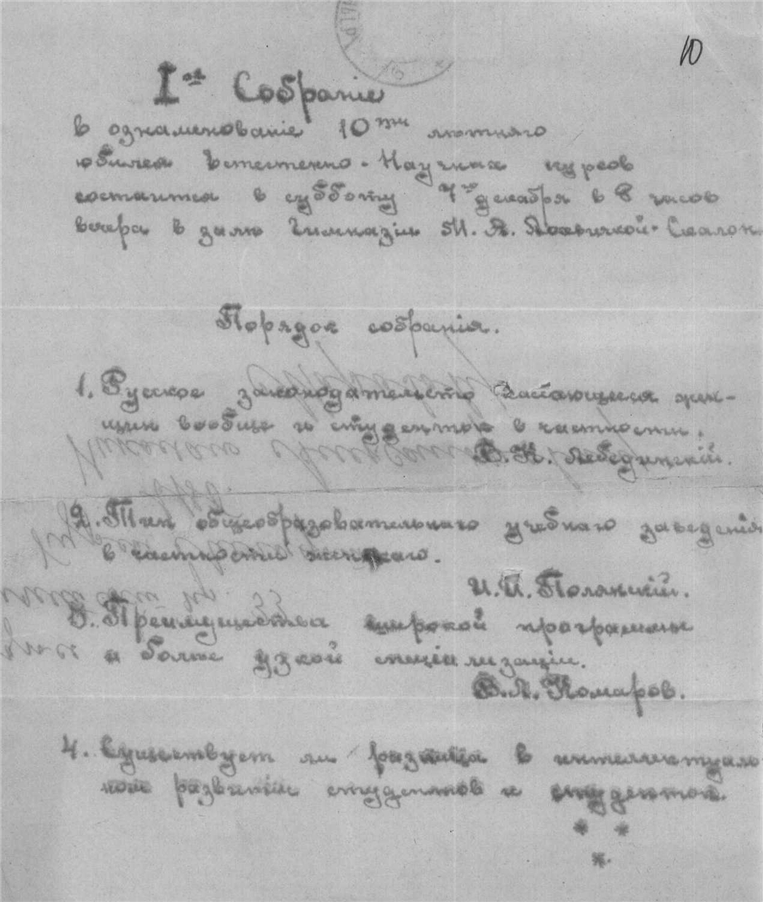 10
Iое Собранiе
в ознаменованiе 10ти лѣтняго
юбилея Естественно-Научных курсов
состоится в субботу 7го декабря в 8 часов
вечера в залѣ Гимназiи М. А. Лохвицкой-Скалон
Порядок собранiя.
1. Русское законодательство касающееся жен-
щин вообще и студенток в частности.
В. К. Лебединскiй.
2. Тип общеобразовательнаго учебнаго заведенiя
в частности женскаго.
И. И. Полянскiй.
3. Преимущества широкой программы
и болѣе узкой спецiализацiи.
В. Л. Комаров.
4. Существует ли разница в интеллектуаль
ном развитiи студентов и студенток.
* *
*